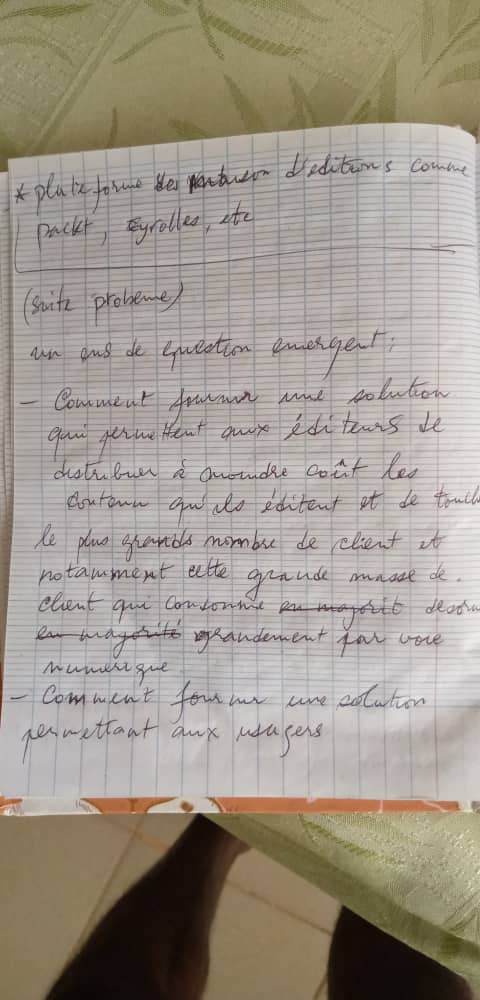 * plateforme des d'editions comme
packt, Eyrolles, etc
(suite probeme)
un ens de question emergent;
- Comment fournir une solution
qui permettent aux éditeurs de
distribuer à moindre coût les
contenu qu'ils éditent et de touch
le plus grands nombre de client et
notamment cette grande masse de
client qui consomme en majorit desorm
en majorité grandement par voie
numerique
- Comment fournir une solution
permettant aux usagers